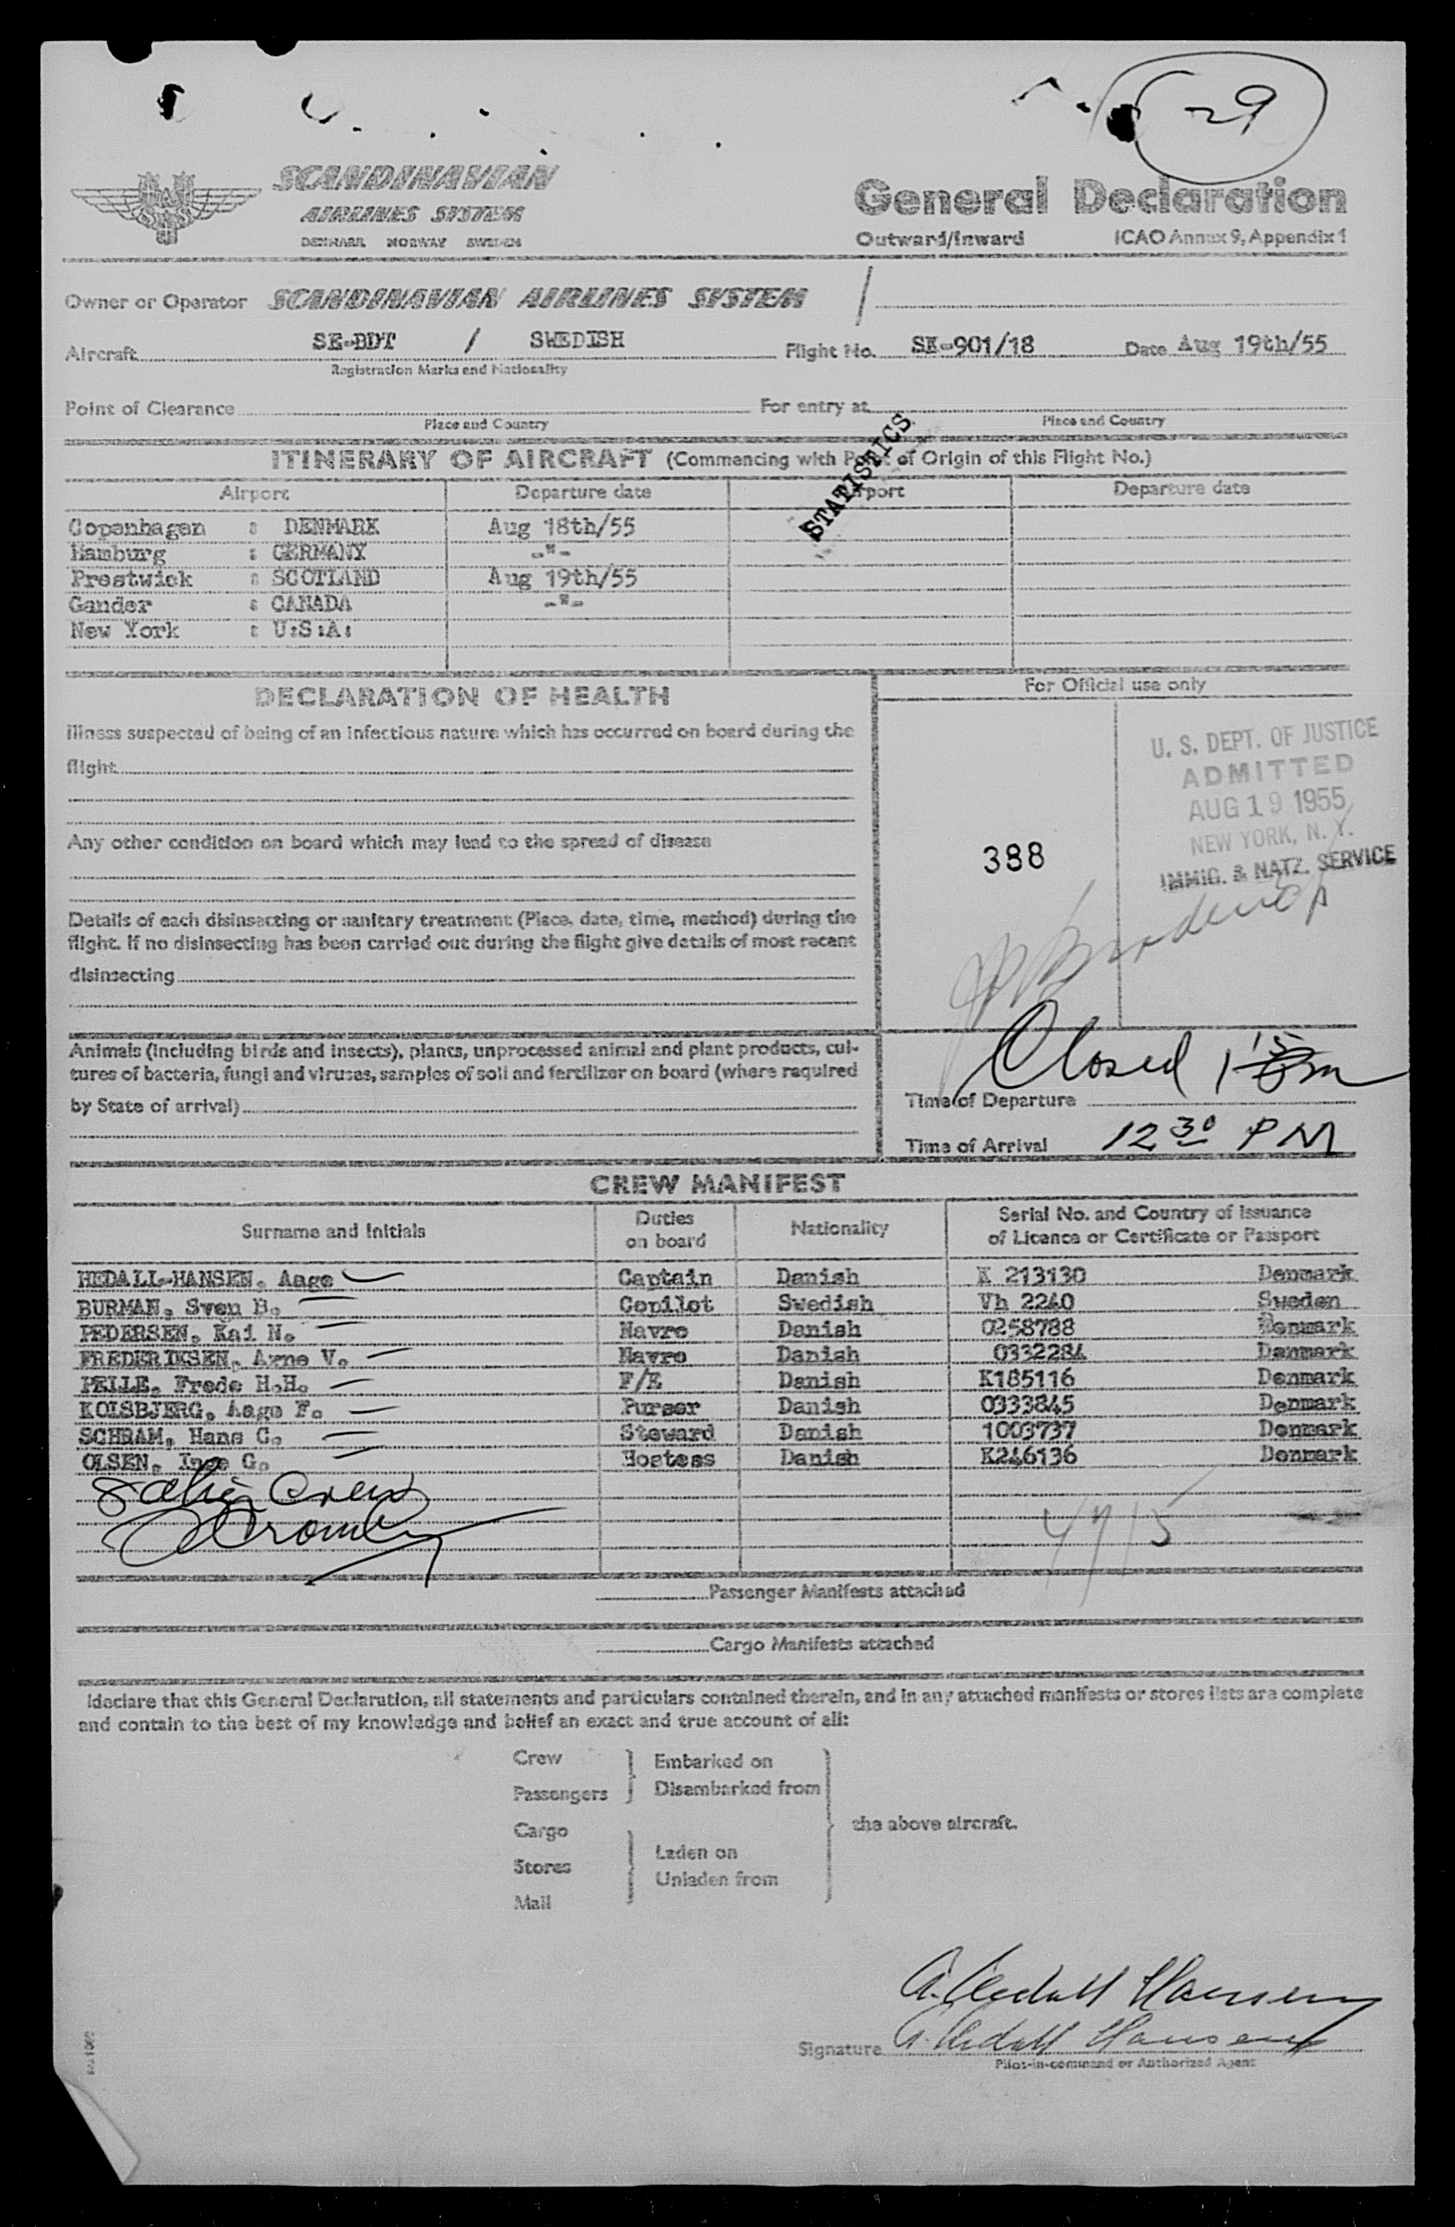 29
SCANDINAVIAN
AIRLINES SYSTEM
DENMARK NORWAY SWEDEN
General Declaration
Outward/Inward ICAO Annex 9, Appendix 1
Owner or Operator SCANDINAVIAN AIRLINES SYSTEM /
Aircraft SE-BDT / SWEDISH Flight No. SK-901/18 Date Aug 19th/55
Registration Marks and Nationality
Point of Clearance For entry at
Place and Country Place and Country
STATISTICS
ITINERARY OF AIRCRAFT (Commencing with Point of Origin of this Flight No.)
Airport Departure date Airport Departure date
Copenhagen : DENMARK Aug 18th/55
Hamburg : GERMANY -"-
Prestwick : SCOTLAND Aug 19th/55
Gander : CANADA -"-
New York : U:S:A:
DECLARATION OF HEALTH
Illness suspected of being of an infectious nature which has occurred on board during the
flight
Any other condition on board which may lead to the spread of disease
Details of each disinsecting or sanitary treatment (Place, date, time, method) during the
flight. If no disinsecting has been carried out during the flight give details of most recent
disinsecting
Animals (including birds and insects), plants, unprocessed animal and plant products, cul-
tures of bacteria, fungi and viruses, samples of soil and fertilizer on board (where required
by State of arrival)
For Official use only
388
U. S. DEPT. OF JUSTICE
ADMITTED
AUG 19 1955
NEW YORK, N. Y.
IMMIG. & NATZ. SERVICE
Closed 1
Time of Departure
Time of Arrival 12 30 PM
CREW MANIFEST
Surname and Initials Duties on board Nationality Serial No. and Country of Issuance of Licence or Certificate or Passport
HEDALL-HANSEN, Aage Captain Danish K 213130 Denmark
BURMAN, Sven B. Copilot Swedish Vh 2240 Sweden
PEDERSEN, Kai N. Navro Danish 0258788 Denmark
FREDERIKSEN, Arne V. Navro Danish 0332284 Denmark
PELLE, Frede H.H. F/E Danish K185116 Denmark
KOLSBJERG, Aage F. Purser Danish 0333845 Denmark
SCHRAM, Hans C. Steward Danish 1003737 Denmark
OLSEN, Inge G. Hostess Danish K246136 Denmark
Crew
Passenger Manifests attached
Cargo Manifests attached
I declare that this General Declaration, all statements and particulars contained therein, and in any attached manifests or stores lists are complete
and contain to the best of my knowledge and belief an exact and true account of all:
Crew Embarked on
Passengers Disembarked from
Cargo the above aircraft.
Stores Laden on
Mail Unladen from
A. Hedall Hansen
Signature A. Hedall Hansen
Pilot-in-command or Authorized Agent